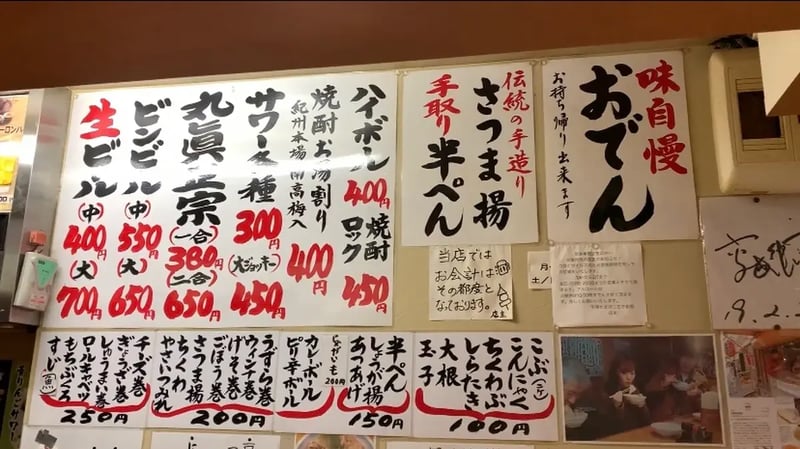 味自慢
おでん
お持ち帰り出来ます
伝統の手造り
さつま揚
手取り半ぺん
ハイボール 400円
焼酎ロック 450
焼酎お湯割り
紀州本場南高梅入 400円
サワー各種 300円
(大ジョッキー) 450
丸眞正宗
(一合) 380円
(二合) 650
ビンビール
(中) 550
(大) 650
生ビール
(中) 400円
(大) 700
当店では
お会計は
その都度と
なっております。
店主
こぶ
こんにゃく
ちくわぶ
しらたき
大根
玉子
100円
半ぺん
しょうが揚
あつあげ
150円
じゃがいも
カレーボール
ピリ辛ボール
200円
うずら巻
ウィンナ巻
げそ巻
ごぼう巻
さつま揚
ちくわ
やさいつみれ
200円
チーズ巻
ぎょうざ巻
しゅうまい巻
ロールキャベツ
もちぶくろ
すじ(魚)
250円
19.2.